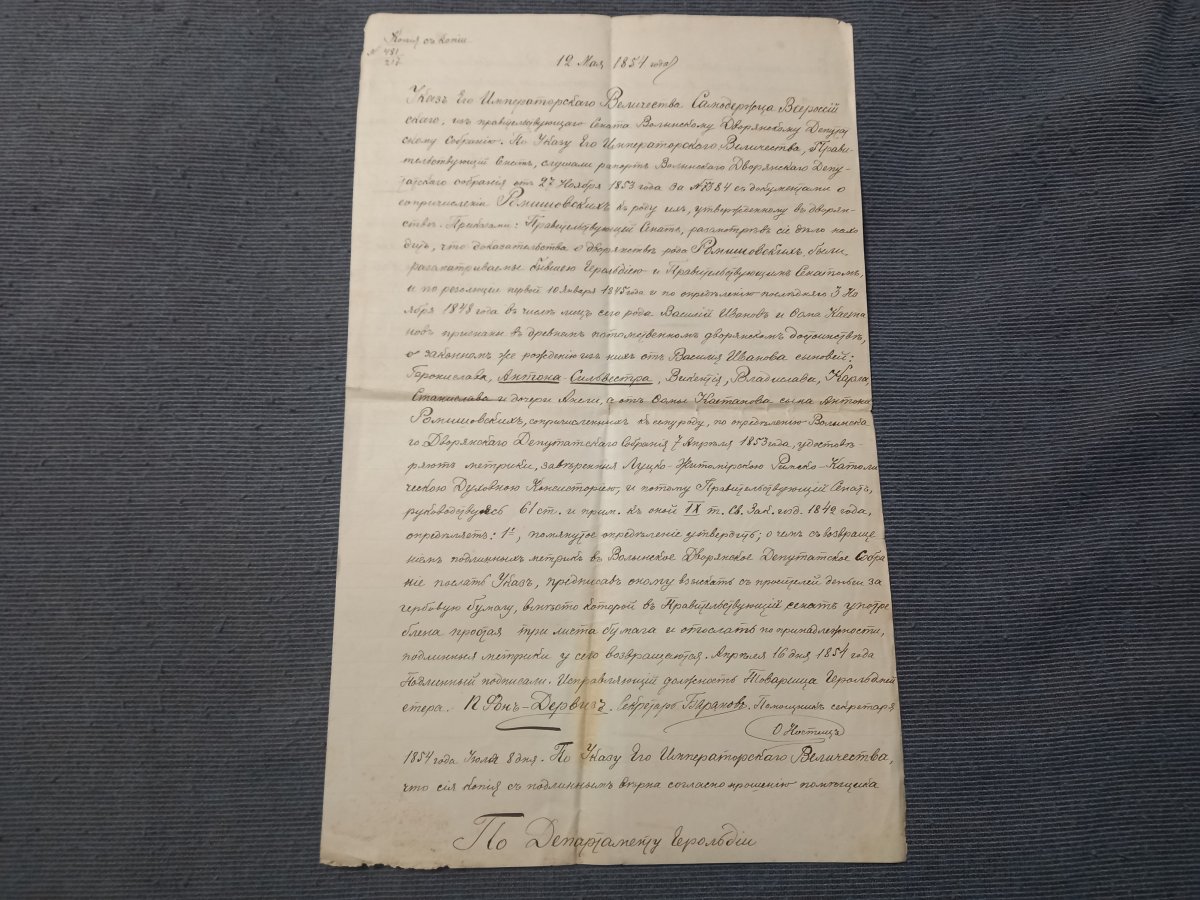 Копія съ копіи
№ 481
217
12 Мая 1854 года
Указъ Его Императорскаго Величества Самодержца Всероссій
скаго, изъ правительствующаго Сената Волынскому Дворянскому Депутат
скому Собранію. По Указу Его Императорскаго Величества, Прави-
тельствующій Сенатъ, слушали рапортъ Волынскаго Дворянскаго Депу-
татскаго собранія отъ 27 Ноября 1853 года за № 1384 съ документами о
сопричисленіи Ромишовскихъ къ роду ихъ, утвержденному въ дворян-
ствѣ. Приказали: Правительствующій Сенатъ, разсмотрѣвъ сіе дѣло нахо
дитъ, что доказательства о дворянствѣ рода Ромишовскихъ были
разсматриваемы бывшею Герольдіею и Правительствующимъ Сенатомъ,
и по резолюціи первой 10 Января 1845 года и по опредѣленію послѣдняго 3 Но
ября 1848 года въ числѣ лицъ сего рода Василій Ивановъ и Ѳома Каетна
новъ признаны въ древнемъ потомственномъ дворянскомъ достоинствѣ,
о законномъ же рожденіи изъ нихъ отъ Василія Иванова сыновей:
Геронислава, Антона-Сильвестра, Викентія, Владислава, Карла,
Станислава и дочери Анели, а отъ Ѳомы Каетанова сына Антона
Ромишовскихъ, сопричисленныхъ къ сему роду, по опредѣленію Волынска
го Дворянскаго Депутатскаго Собранія 7 Апрѣля 1853 года, удостовѣ-
ряютъ метрики, завѣренныя Луцко-Житомірскою Римско-Католи
ческою Духовною Консисторіею, и потому Правительствующій Сенатъ,
руководствуясь 61 ст. и прим. къ оной IX т. Св. Зак. изд. 1842 года,
опредѣляетъ: 1е, помянутое опредѣленіе утвердить; о чемъ съ возвраще
ніемъ подлинныхъ метрикъ въ Волынское Дворянское Депутатское Собра
ніе послать Указъ, предписавъ оному взыскать съ просителей деньги за
гербовую бумагу, вмѣсто которой въ Правительствующій сенатъ употре
блена простая три листа бумага и отослать по принадлежности,
подлинныя метрики у сего возвращаются. Апрѣля 16 дня 1854 года
Подлинный подписали: Исправляющій должность Товарища Герольдмей
стера. П Фонъ-Дервизъ. Секретарь Барановъ. Помощникъ секретаря
О Ностицъ
1854 года Іюля 8 дня. По Указу Его Императорскаго Величества,
что сія копія съ подлиннымъ вѣрна согласно прошенію помѣщика
По Департаменту Герольдіи